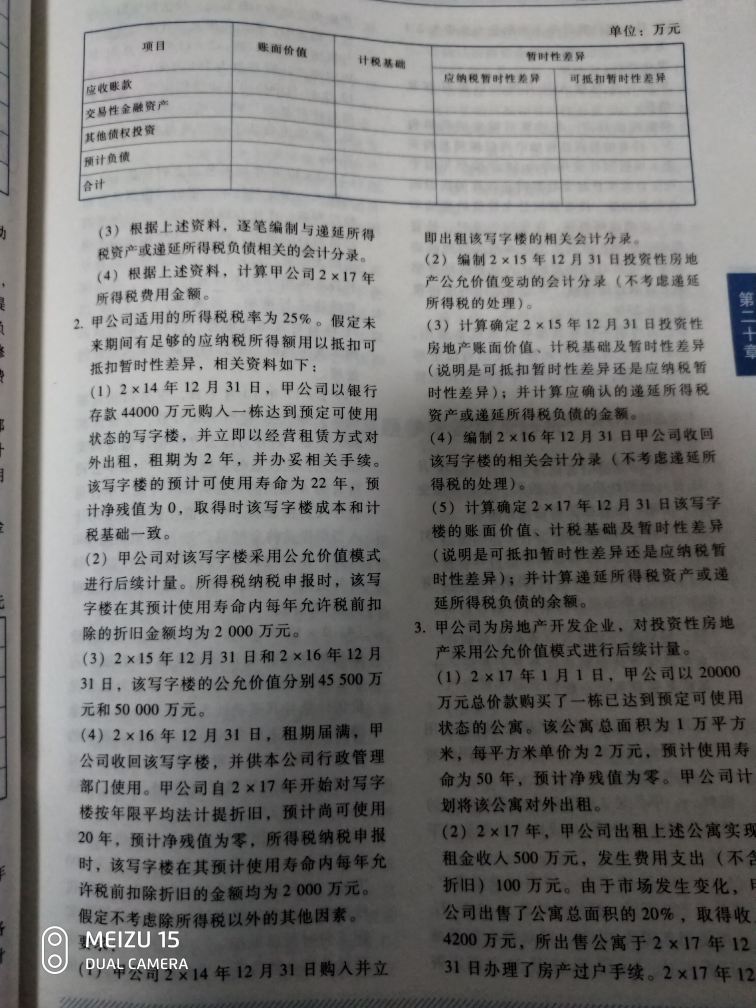 单位：万元
项目 账面价值 计税基础 暂时性差异
应纳税暂时性差异 可抵扣暂时性差异
应收账款
交易性金融资产
其他债权投资
预计负债
合计
（3）根据上述资料，逐笔编制与递延所得
税资产或递延所得税负债相关的会计分录。
（4）根据上述资料，计算甲公司 2×17 年
所得税费用金额。
2. 甲公司适用的所得税税率为 25%。假定未
来期间有足够的应纳税所得额用以抵扣可
抵扣暂时性差异，相关资料如下：
（1）2×14 年 12 月 31 日，甲公司以银行
存款 44000 万元购入一栋达到预定可使用
状态的写字楼，并立即以经营租赁方式对
外出租，租期为 2 年，并办妥相关手续。
该写字楼的预计可使用寿命为 22 年，预
计净残值为 0，取得时该写字楼成本和计
税基础一致。
（2）甲公司对该写字楼采用公允价值模式
进行后续计量。所得税纳税申报时，该写
字楼在其预计使用寿命内每年允许税前扣
除的折旧金额均为 2 000 万元。
（3）2×15 年 12 月 31 日和 2×16 年 12 月
31 日，该写字楼的公允价值分别 45 500 万
元和 50 000 万元。
（4）2×16 年 12 月 31 日，租期届满，甲
公司收回该写字楼，并供本公司行政管理
部门使用。甲公司自 2×17 年开始对写字
楼按年限平均法计提折旧，预计尚可使用
20 年，预计净残值为零，所得税纳税申报
时，该写字楼在其预计使用寿命内每年允
许税前扣除折旧的金额均为 2 000 万元。
假定不考虑除所得税以外的其他因素。
（1）甲公司 2×14 年 12 月 31 日购入并立
即出租该写字楼的相关会计分录。
（2）编制 2×15 年 12 月 31 日投资性房地
产公允价值变动的会计分录（不考虑递延
所得税的处理）。
（3）计算确定 2×15 年 12 月 31 日投资性
房地产账面价值、计税基础及暂时性差异
（说明是可抵扣暂时性差异还是应纳税暂
时性差异）；并计算应确认的递延所得税
资产或递延所得税负债的金额。
（4）编制 2×16 年 12 月 31 日甲公司收回
该写字楼的相关会计分录（不考虑递延所
得税的处理）。
（5）计算确定 2×17 年 12 月 31 日该写字
楼的账面价值、计税基础及暂时性差异
（说明是可抵扣暂时性差异还是应纳税暂
时性差异）；并计算递延所得税资产或递
延所得税负债的余额。
3. 甲公司为房地产开发企业，对投资性房地
产采用公允价值模式进行后续计量。
（1）2×17 年 1 月 1 日，甲公司以 20000
万元总价款购买了一栋已达到预定可使用
状态的公寓。该公寓总面积为 1 万平方
米，每平方米单价为 2 万元，预计使用寿
命为 50 年，预计净残值为零。甲公司计
划将该公寓对外出租。
（2）2×17 年，甲公司出租上述公寓实现
租金收入 500 万元，发生费用支出（不含
折旧）100 万元。由于市场发生变化，甲
公司出售了公寓总面积的 20%，取得收
4200 万元，所出售公寓于 2×17 年 12
31 日办理了房产过户手续。2×17 年 12
第二十章
MEIZU 15
DUAL CAMERA